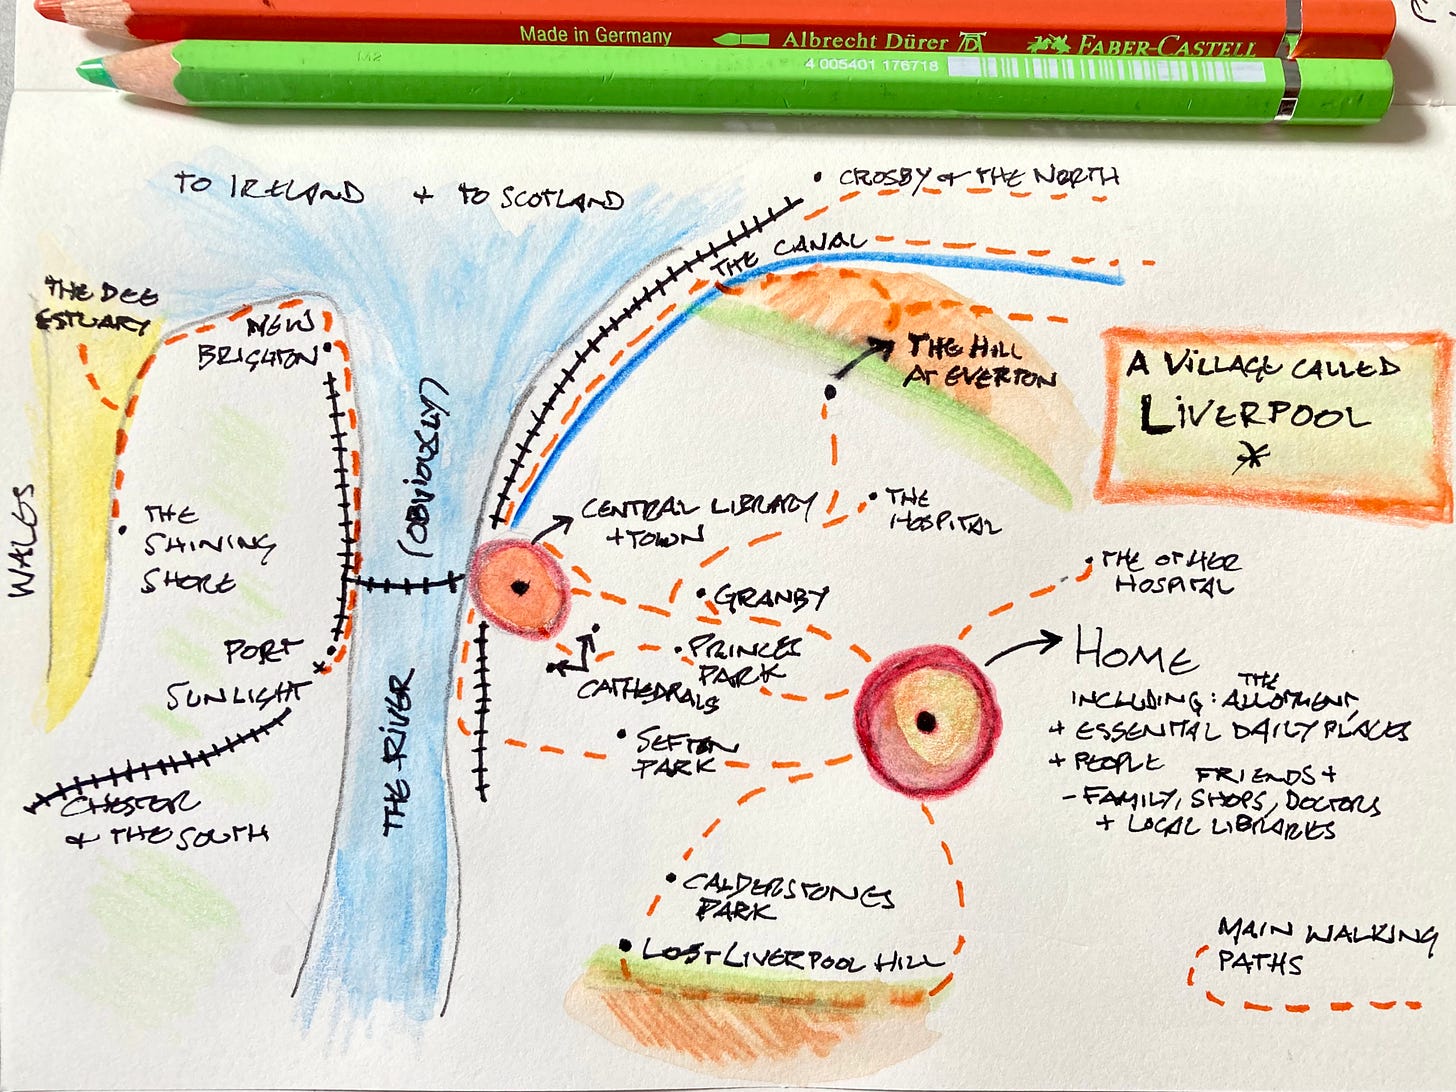 Made in Germany Albrecht Dürer FABER-CASTELL
M2
4 005401 176718
TO IRELAND + TO SCOTLAND
CROSBY & THE NORTH
THE CANAL
THE DEE
ESTUARY
NEW
BRIGHTON
THE HILL
AT EVERTON
A VILLAGE CALLED
LIVERPOOL
*
(OBVIOUSLY)
WALES
THE
SHINING
SHORE
CENTRAL LIBRARY
+ TOWN
THE
HOSPITAL
THE OTHER
HOSPITAL
GRANBY
PRINCES
PARK
CATHEDRALS
PORT
SUNLIGHT
HOME
INCLUDING: THE ALLOTMENT,
+ ESSENTIAL DAILY PLACES
+ PEOPLE
- FAMILY, FRIENDS + SHOPS, DOCTORS
+ LOCAL LIBRARIES
SEFTON
PARK
THE RIVER
CHESTER
& THE SOUTH
CALDERSTONES
PARK
LOST LIVERPOOL HILL
MAIN WALKING
PATHS